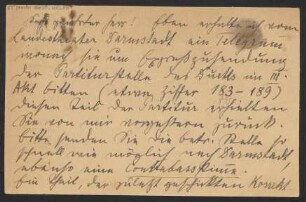 Sehr geehrter Herr! Eben erhalte ich vom
Landestheater Darmstadt ein Telegramm,
wonach sie um Expreßzusendung
der Partiturstelle des Duetts im III.
Akt bitten (etwa Ziffer 183–189)
diesen Teil der Partitur erhielten
Sie von mir vorgestern zurück.
Bitte senden Sie die betr. Stelle so
schnell wie möglich nach Darmstadt,
ebenso eine Contrabassstimme.
Ein Theil, der zuletzt geschickten